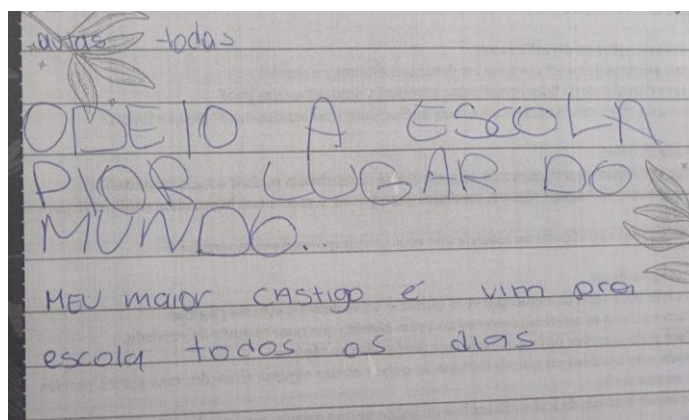 aulas todas
ODEIO A ESCOLA
PIOR LUGAR DO
MUNDO...
MEU maior CAStigo é vim pra
escola todos os dias